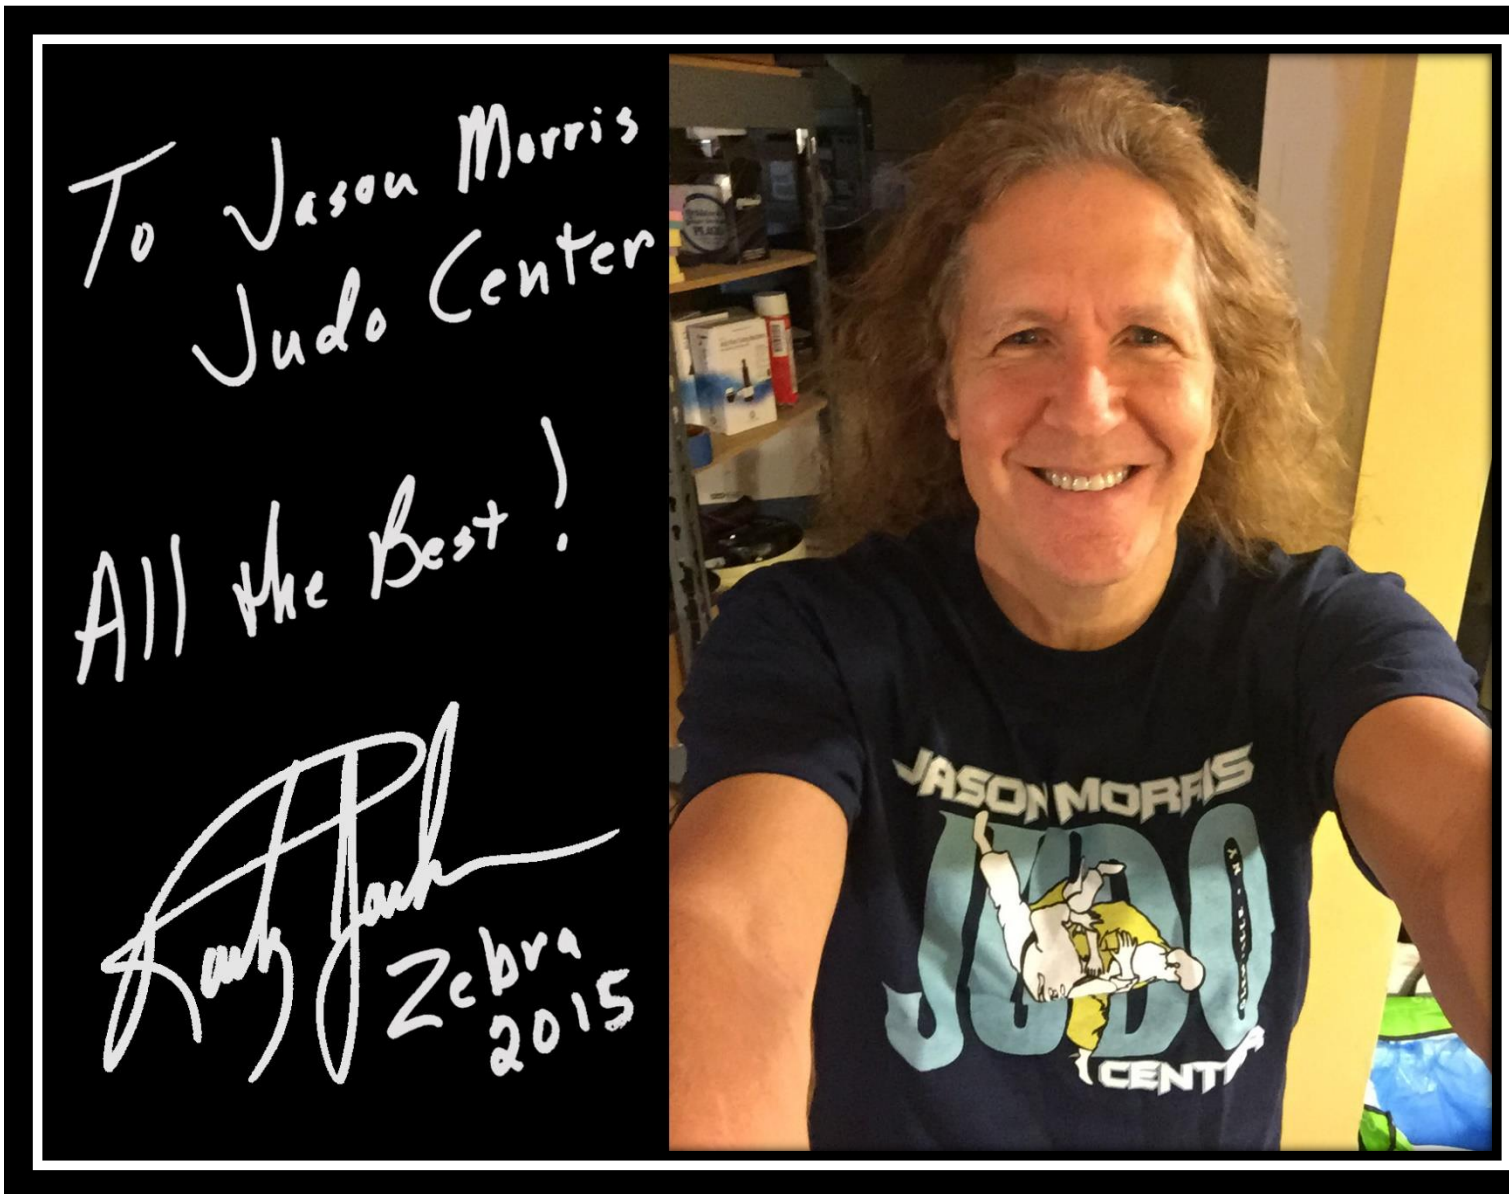 To Jason Morris
Judo Center
All the Best!
Randy Jackson
Zebra
2015
JASON MORRIS
JUDO
GLENVILLE, NY
CENTER